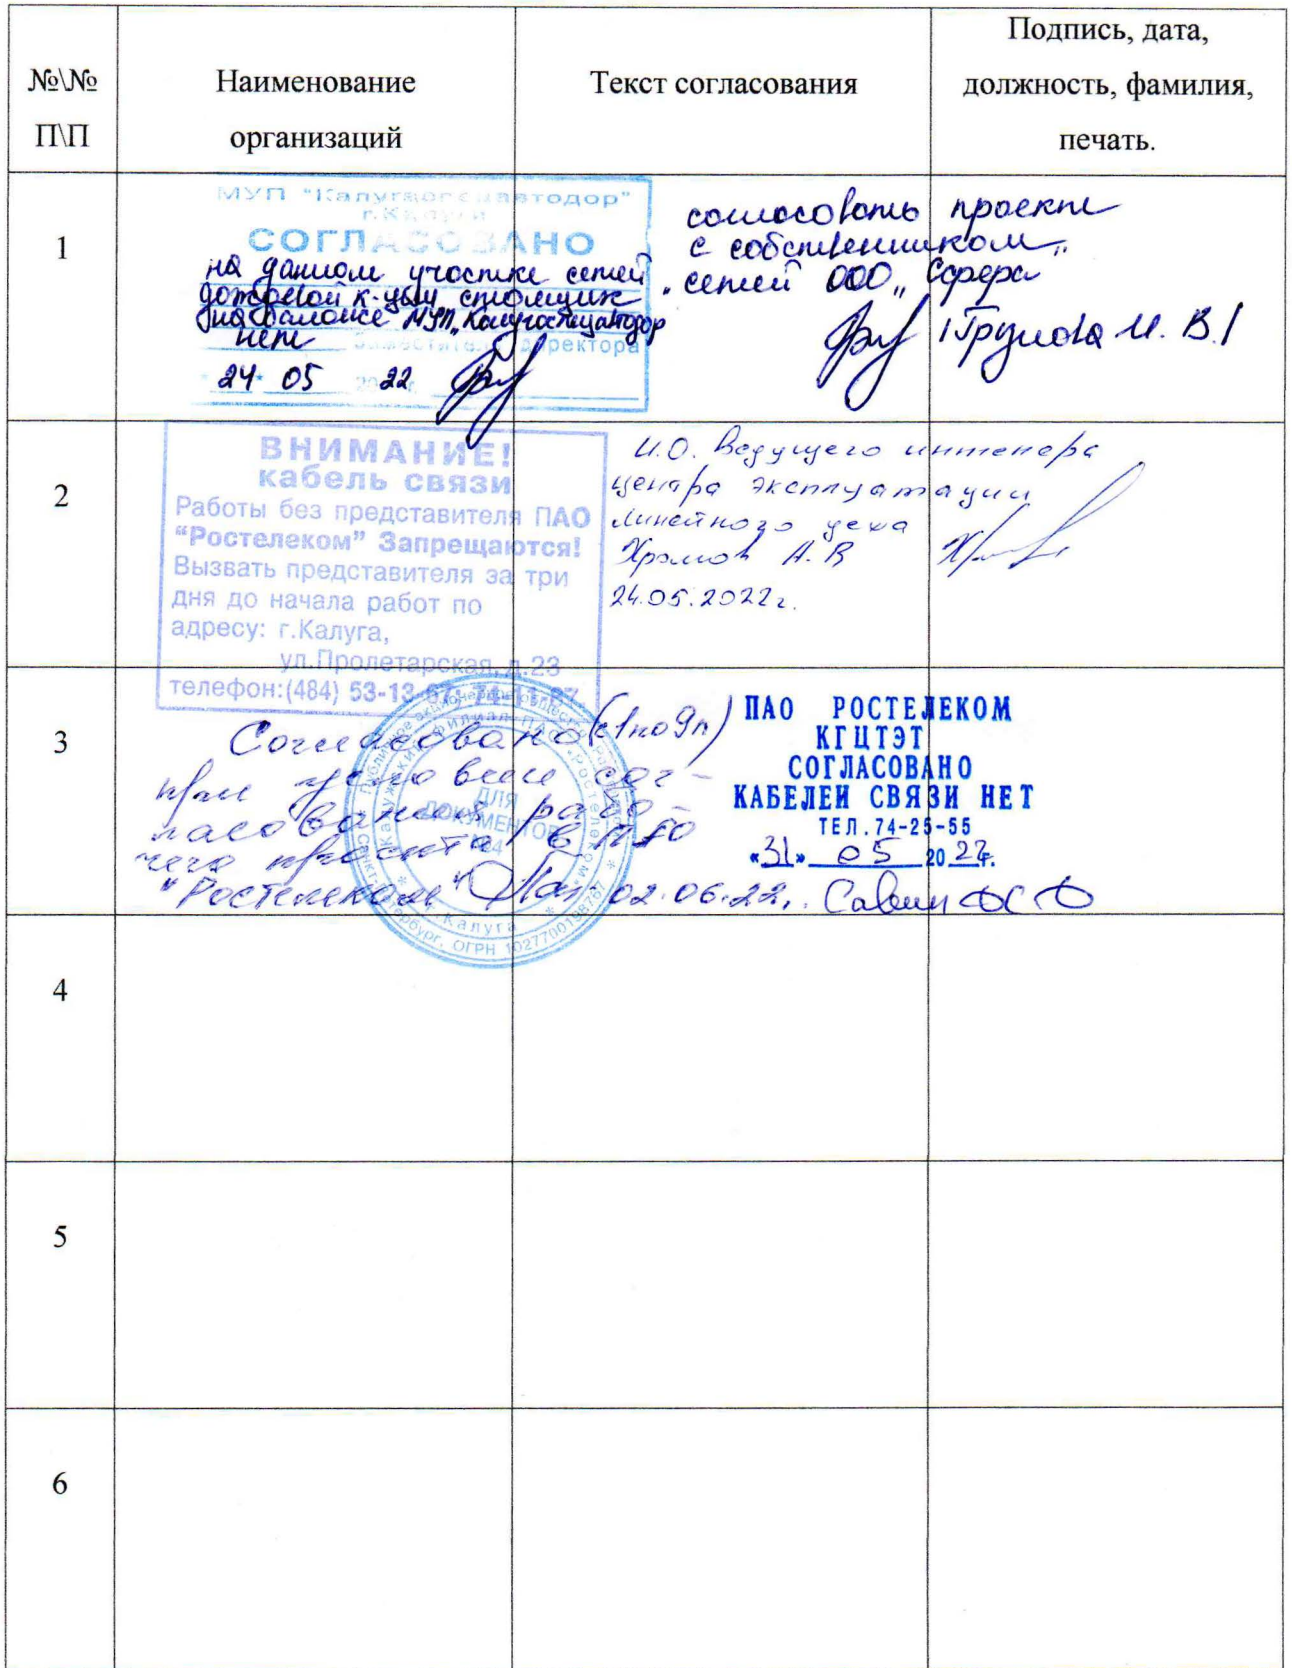 №\№ П\П
Наименование организаций
Текст согласования
Подпись, дата, должность, фамилия, печать.
1
МУП "Калугаспецавтодор"
г.Калуги
СОГЛАСОВАНО
на данном участке сетей
дождевой к-ции, стоящих
на балансе МУП "Калугаспецавтодор
нет
Заместитель директора
24 05 2022
согласовать проект
с собственником
сетей ООО "Сфера
/Грунова И. В./
2
ВНИМАНИЕ!
кабель связи
Работы без представителя ПАО
"Ростелеком" Запрещаются!
Вызвать представителя за три
дня до начала работ по
адресу: г.Калуга,
ул.Пролетарская, д.23
телефон:(484) 53-13-67;
И.О. Ведущего инженера
центра эксплуатации
линейного цеха
Храмов А.В
24.05.2022г.
3
Согласовано (с 1 по 9л)
при условии сог-
ласования рабо-
чего проекта в ПАО
"Ростелеком" 02.06.22г.
Калужский филиал ПАО «Ростелеком»
ДЛЯ
ДОКУМЕНТОВ
г.Калуга
ОГРН 1027700198767
ПАО РОСТЕЛЕКОМ
КГЦТЭТ
СОГЛАСОВАНО
КАБЕЛЕЙ СВЯЗИ НЕТ
ТЕЛ.74-25-55
«31» 05 2022г.
Савин
4
5
6